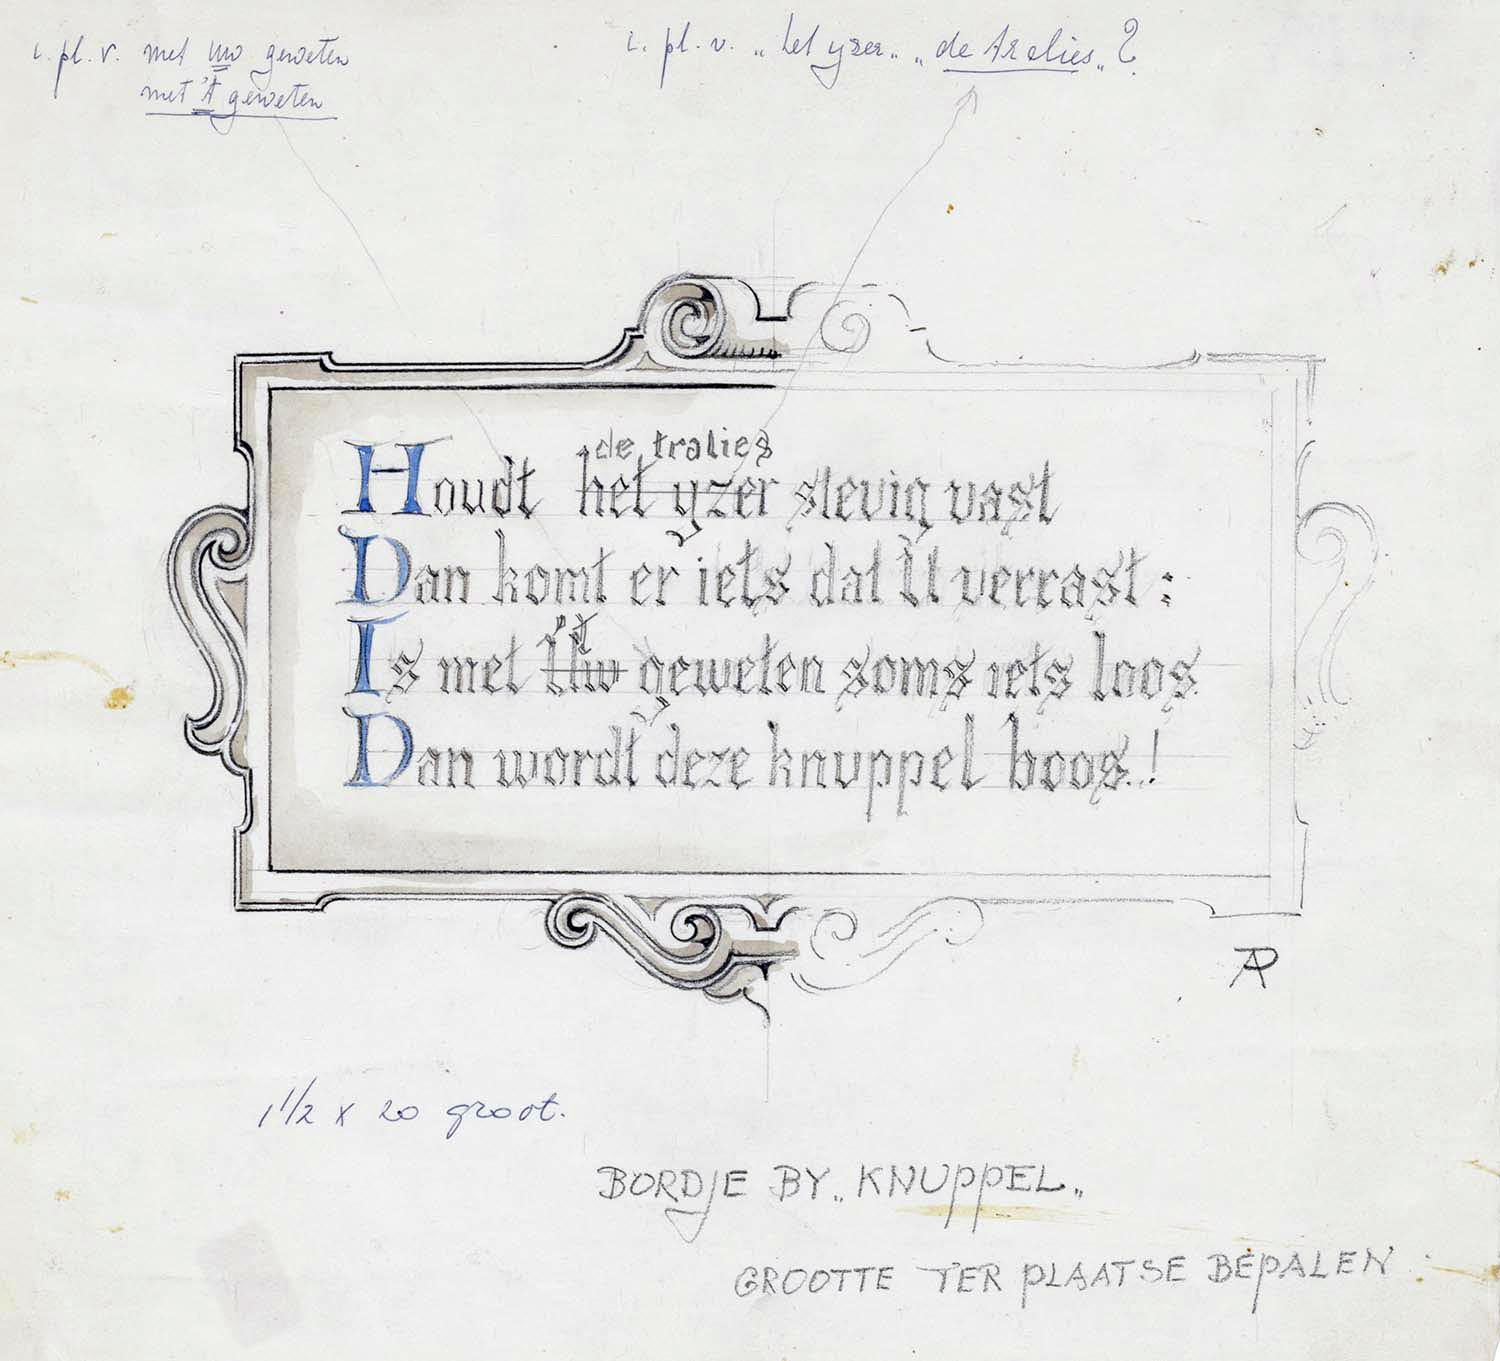 i. pl. v. met uw geweten
met 't geweten
i. pl. v. „het yzer„ „de tralies„?
de tralies
Houdt het yzer stevig vast
Dan komt er iets dat U verrast:
't
Is met Uw geweten soms iets loos
Dan wordt deze knuppel boos.!
AP
1 1/2 x 20 groot.
BORDJE BY „KNUPPEL„
GROOTTE TER PLAATSE BEPALEN